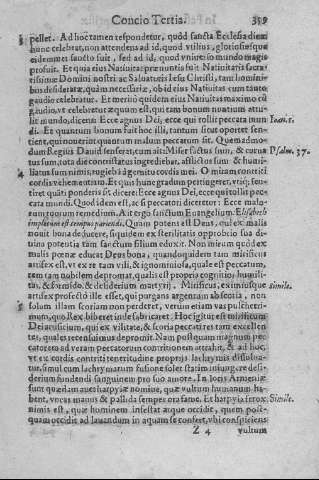 Concio Tertia. 359
pellet. Ad hoc tamen respondetur, quòd sancta Ecclesia diem
hunc celebrat, non attendens ad id, quod vtilius, gloriosiúsque
eidem met sancto fuit, sed ad id, quod vniuerso mundo magis
profuit. Et quia eius Natiuitas prænuntia fuit Natiuitatis sacra-
tissimæ Domini nostri ac Saluatoris Iesu Christi, tam homini-
bus desideratæ, quàm necessariæ, ob id eius Natiuitas cum tanto
gaudio celebratur. Et meritò quidem eius Natiuitas maximo cũ
gaudio, vt celebretur æquum est, qui tam bonum nuntium attu-
lit mundo, dicens: Ecce agnus Dei, ecce qui tollit peccata mun Ioan. 1.
di. Et quantum bonum fuit hoc illi, tantum sicut oportet sen-
tient, qui nouerint quantum malum peccatum sit. Quemadmo-
dum Regius Dauid sentiebat, cum ait: Miser factus sum, & curua Psalm. 37.
tus sum, tota die contristatus ingrediebar, afflictus sum & humi-
4 liatus sum nimis, rugiebã à gemitu cordis mei. O miram contriti
cordis vehementiam. Et quis hunc gradum pertingeret, vtiq; sen-
tiret quãti ponderis sit dicere: Ecce agnus Dei, ecce qui tollit pec-
cata mundi. Quod idem est, ac si peccatori diceretur: Ecce malo-
rum tuorum remedium. Ait ergo sanctum Euangelium. Elisabeth
impletum est tempus pariendi. Quàm potens est Deus, qui ex malis
nouit bona deducere, siquidem ex sterilitatis opprobrio sua di-
uina potentia tam sanctum filium eduxit. Non mirum quòd ex
malis pœnæ educat Deus bona, quandoquidem tam mirificus
artifex est, vt ex re tam vili, & ignominiosa, quale est peccatum,
rem tam nobilem depromat, qualis est propria cognitio, humili-
tas, & formido, & desiderium martyrij. Mirificus, eximiusque Simile.
artifex profectò ille esset, qui purgans argentum ab scoria, non
5 solùm illam scoriam non perderet, verum etiam vas pulcherri-
mum, quo Rex biberet inde fabricaret. Hoc igitur est mirificum
Dei artificium, qui ex vilitate, & scoria peccati res tam excellen-
tes, quales recensuimus depromit. Nam postquam magnum pec
catorem ad veram peccatorum contritionem attrahit, & ad hoc,
vt ex cordis contriti teneritudine proprijs lachrymis dissolua-
tur, simul cum lachrymarum fusione solet statim insurgere desi-
derium fundendi sanguinem pro suo amore. In locis Armeniæ
sunt quædam aues harpyiæ nomine, quæ vultum humanum ha-
bent, vocas manus & pallida semper ora fame. Et harpyia ferox Simile.
nimis est, quæ hominem infestat æque occidit, quem post-
quam occidit ad lauandum in aquam se confert, vbi conspiciens
Z 4 vultum